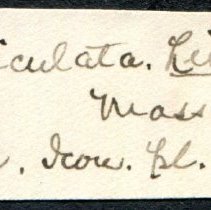 iculata. Li
Mass
. Icon. Pl.